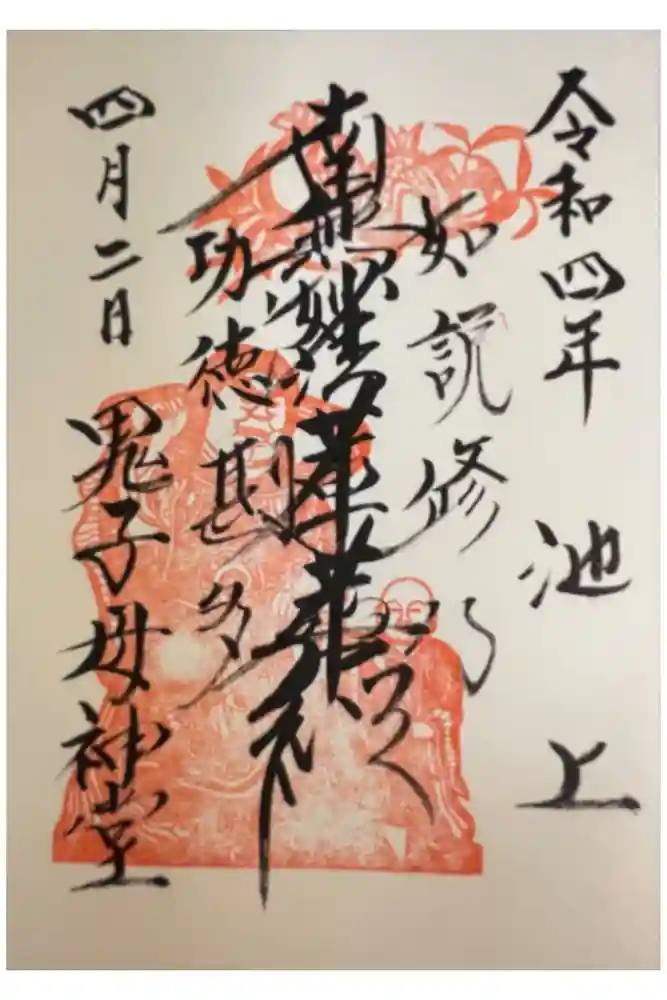 令和四年 池上
如説修行
南無妙法蓮華経
功徳甚多
四月二日 鬼子母神堂